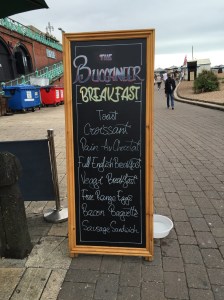 THE
BUCCANEER
BREAKFAST
Toast
Croissant
Pain Au Chocolat
Full English Breakfast
Veggie Breakfast
Free Range Eggs
Bacon Baguette
Sausage Sandwich